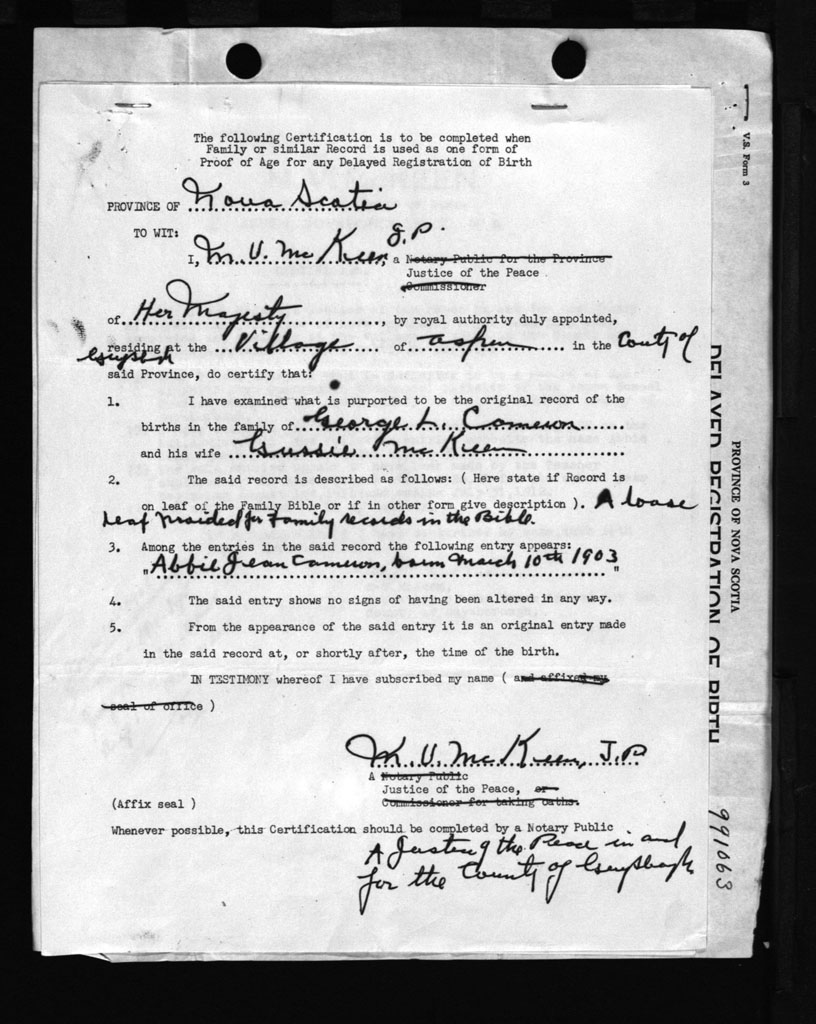 The following Certification is to be completed when
Family or similar Record is used as one form of
Proof of Age for any Delayed Registration of Birth
PROVINCE OF Nova Scotia
TO WIT:
I, M. V. McKeen, J.P. a Notary Public for the Province
Justice of the Peace
Commissioner
of Her Majesty, by royal authority duly appointed,
residing at the Village of Aspen in the County of
Guysboro
said Province, do certify that:
1. I have examined what is purported to be the original record of the
births in the family of George L. Cameron
and his wife Gussie McKeen
2. The said record is described as follows: ( Here state if Record is
on leaf of the Family Bible or if in other form give description ). A loose
Leaf for Family records in the Bible.
3. Among the entries in the said record the following entry appears:
"Abbie Jean Cameron, born March 10th 1903"
4. The said entry shows no signs of having been altered in any way.
5. From the appearance of the said entry it is an original entry made
in the said record at, or shortly after, the time of the birth.
IN TESTIMONY whereof I have subscribed my name ( and affixed my
seal of office )
M. V. McKeen, J.P
A Notary Public
Justice of the Peace, or
(Affix seal ) Commissioner for taking oaths.
Whenever possible, this Certification should be completed by a Notary Public
A Justice of the Peace in and
for the County of Guysborough
V.S. Form 3
PROVINCE OF NOVA SCOTIA
DELAYED REGISTRATION OF BIRTH
991063